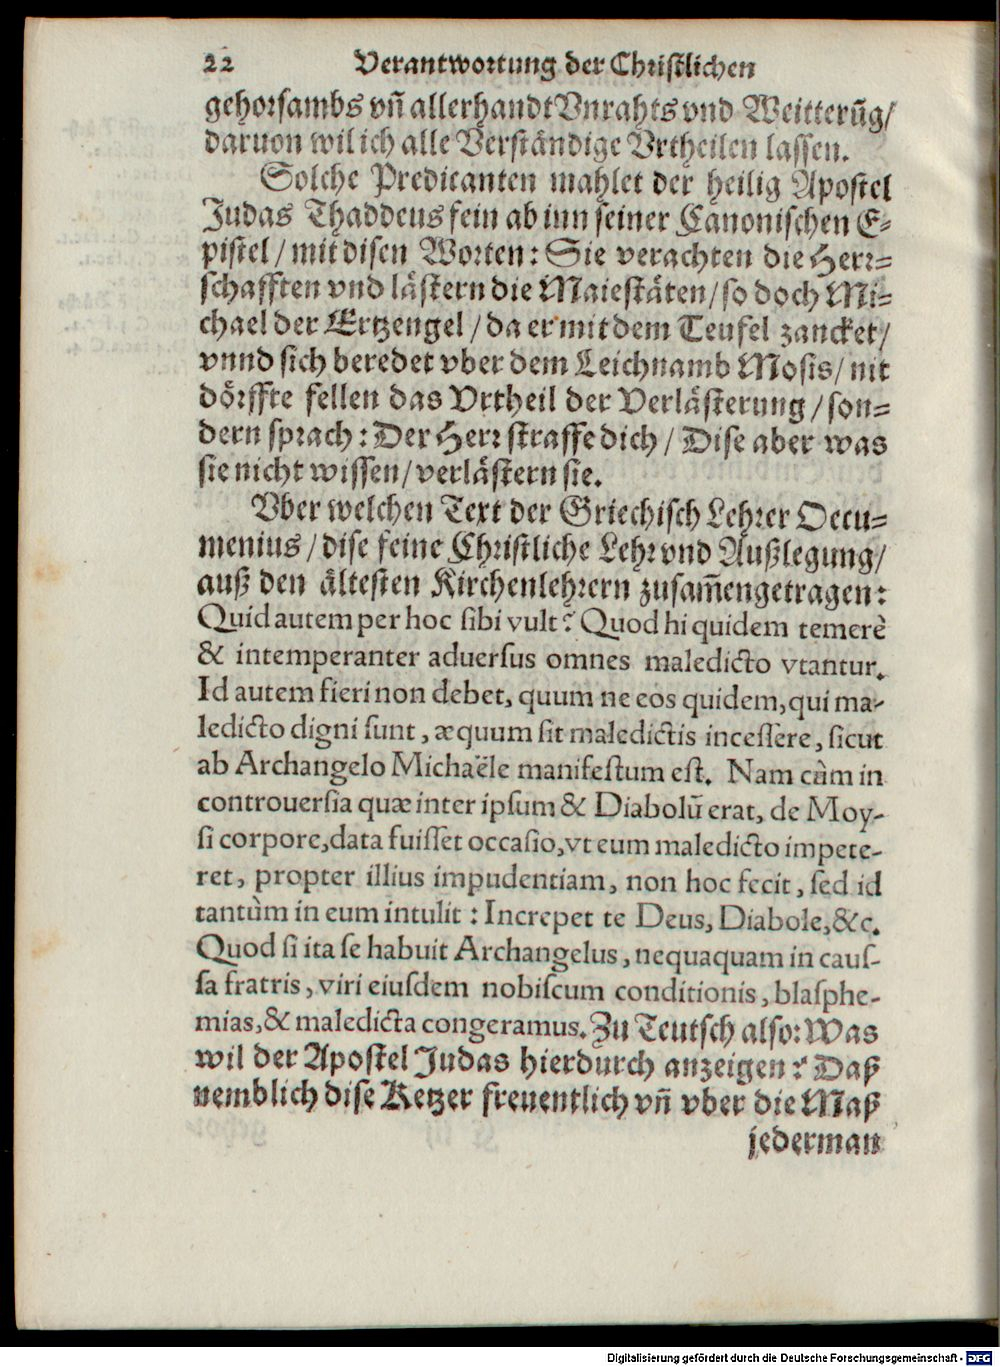 22 Verantwortung der Christlichen
gehorsambs vñ allerhandt Vnrahts vnd Weitterũg/
daruon wil ich alle Verständige Vrtheilen lassen.
Solche Predicanten mahlet der heilig Apostel
Judas Thaddeus fein ab inn seiner Canonischen E-
pistel / mit disen Worten: Sie verachten die Herr-
schafften vnd lästern die Maiestäten / so doch Mi-
chael der Ertzengel / da er mit dem Teufel zancket /
vnnd sich beredet vber dem Leichnamb Mosis / nit
dörffte fellen das Vrtheil der Verlästerung / son-
dern sprach: Der Herr straffe dich / Dise aber was
sie nicht wissen / verlästern sie.
Vber welchen Text der Griechisch Lehrer Oecu-
menius / dise feine Christliche Lehr vnd Außlegung /
auß den ältesten Kirchenlehrern zusam̃engetragen:
Quid autem per hoc sibi vult? Quod hi quidem temerè
& intemperanter aduersus omnes maledicto vtantur.
Id autem fieri non debet, quum ne eos quidem, qui ma-
ledicto digni sunt, æquum sit maledictis incessere, sicut
ab Archangelo Michaële manifestum est. Nam cùm in
controuersia quæ inter ipsum & Diabolũ erat, de Moy-
si corpore, data fuisset occasio, vt eum maledicto impete-
ret, propter illius impudentiam, non hoc fecit, sed id
tantùm in eum intulit: Increpet te Deus, Diabole, &c.
Quod si ita se habuit Archangelus, nequaquam in caus-
sa fratris, viri eiusdem nobiscum conditionis, blasphe-
mias, & maledicta congeramus. Zu Teutsch also: Was
wil der Apostel Judas hierdurch anzeigen? Daß
nemblich dise Ketzer freuentlich vñ vber die Maß
jederman
Digitalisierung gefördert durch die Deutsche Forschungsgemeinschaft - DFG